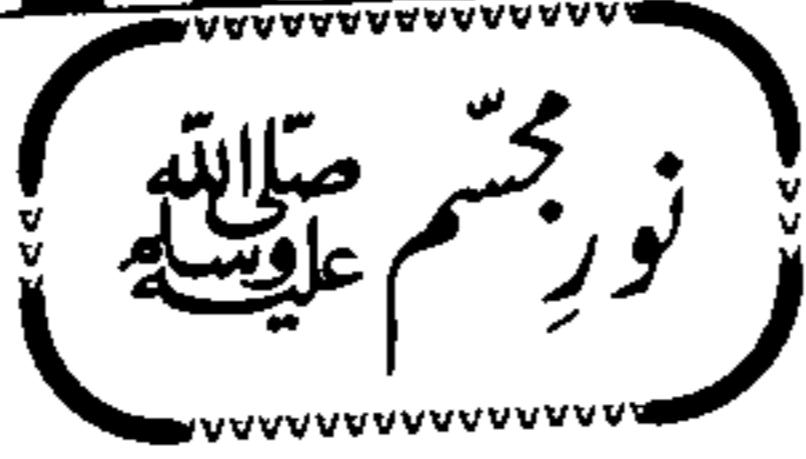 نورِ مجسّم صلی اللہ علیہ وسلم